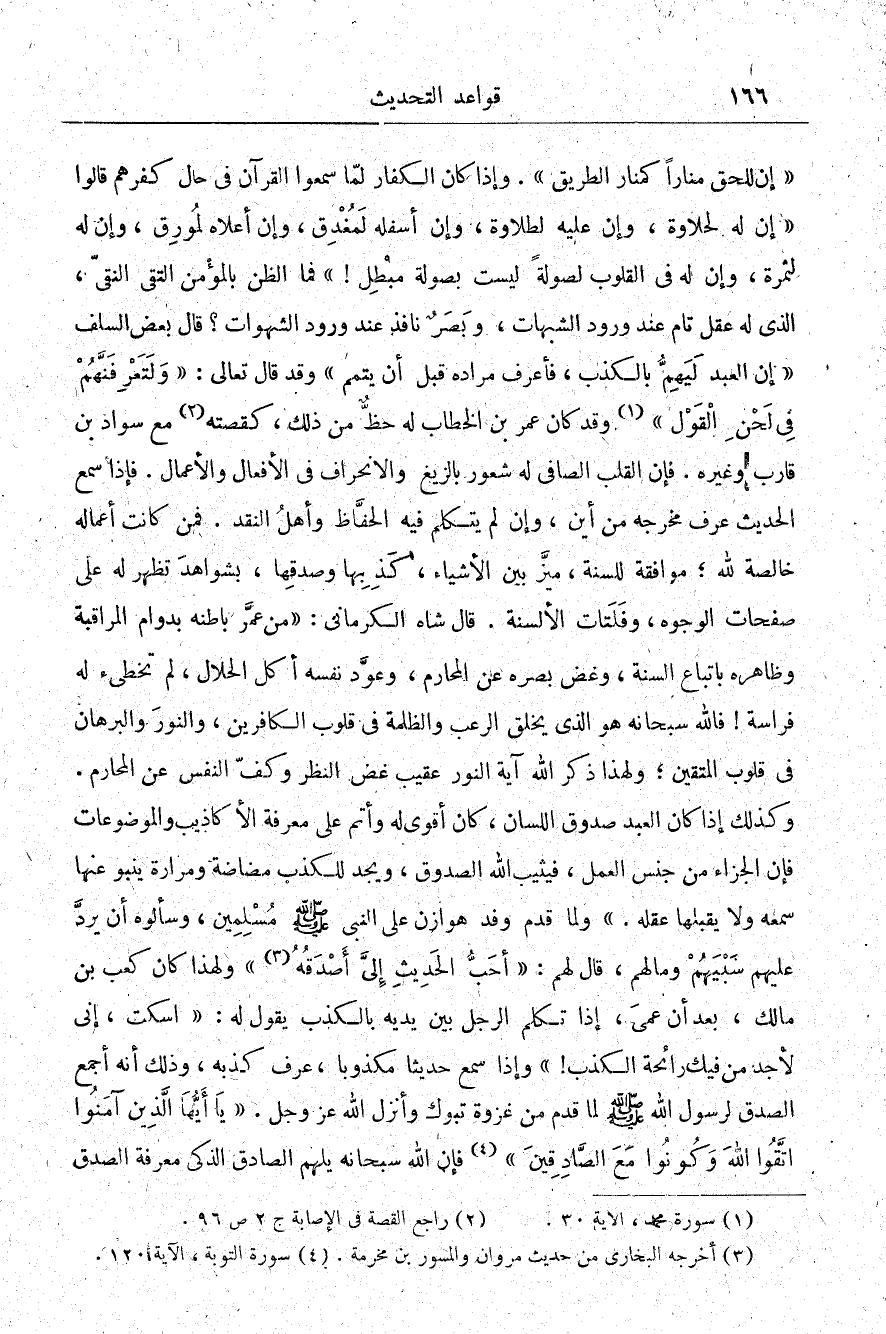 ١٦٦ قواعد التحديث
« إن للحق مناراً كمنار الطريق » . وإذا كان الكفار لمّا سمعوا القرآن فى حال كفرهم قالوا
« إن له لحلاوة ، وإن عليه لطلاوة ، وإن أسفله لَمُغْدِق ، وإن أعلاه لمُورِق ، وإن له
لثمرة ، وإن له فى القلوب لصولةً ليست بصولة مبْطِل ! » فما الظن بالمؤمن التقى النقىّ ،
الذى له عقل تام عند ورود الشبهات ، وبَصَرٌ نافذ عند ورود الشهوات ؟ قال بعض السلف
« إن العبد لَيَهِمُّ بالكذب ، فأعرف مراده قبل أن يتمم » وقد قال تعالى : « وَلَتَعْرِفَنَّهُمْ
فِى لَحْنِ الْقَوْل » (١) وقد كان عمر بن الخطاب له حظٌّ من ذلك ، كقصته(٢) مع سواد بن
قارب وغيره . فإن القلب الصافى له شعور بالزيغ والانحراف فى الأفعال والأعمال . فإذا سمع
الحديث عرف مخرجه من أين ، وإن لم يتكلم فيه الحفَّاظ وأهلُ النقد . فمن كانت أعماله
خالصة لله ؛ موافقة للسنة ، ميَّز بين الأشياء ، كَذِبِها وصدقِها ، بشواهدَ تظهر له على
صفحات الوجوه ، وفَلَتات الألسنة . قال شاه الكرمانى : «من عمَّر باطنه بدوام المراقبة
وظاهره باتباع السنة ، وغض بصره عن المحارم ، وعوَّد نفسه أكل الحلال ، لم تخطىء له
فراسة ! فالله سبحانه هو الذى يخلق الرعب والظلمة فى قلوب الكافرين ، والنورَ والبرهان
فى قلوب المتقين ؛ ولهذا ذكر الله آية النور عقيب غض النظر وكفّ النفس عن المحارم .
وكذلك إذا كان العبد صدوق اللسان ، كان أقوى له وأتم على معرفة الأكاذيب والموضوعات
فإن الجزاء من جنس العمل ، فيثيب الله الصدوق ، ويجد للكذب مضاضة ومرارة ينبو عنها
سمعه ولا يقبلها عقله . » ولما قدم وفد هوازن على النبى ﷺ مُسْلِمِين ، وسألوه أن يردَّ
عليهم سَبْيَهُمْ ومالهم ، قال لهم : « أحَبُّ الحَدِيثِ إِلىَّ أَصْدَقُهُ(٣) » ولهذا كان كعب بن
مالك ، بعد أن عمىَ ، إذا تكلم الرجل بين يديه بالكذب يقول له : « اسكت ، إنى
لأجد من فيك رائحة الكذب! » وإذا سمع حديثا مكذوبا ، عرف كذبه ، وذلك أنه أجمع
الصدق لرسول الله ﷺ لما قدم من غزوة تبوك وأنزل الله عز وجل . « يَا أَيُّهَا الَّذِين آمَنُوا
اتَّقُوا اللهَ وَكُونُوا مَعَ الصَّادِقِينَ » (٤) فإن الله سبحانه يلهم الصادق الذكى معرفة الصدق
(١) سورة محمد ، الاية ٣٠ . (٢) راجع القصة فى الإصابة ج ٢ ص ٩٦ .
(٣) أخرجه البخارى من حديث مروان والمسور بن مخرمة . (٤) سورة التوبة ، الآية ١٢٠ .